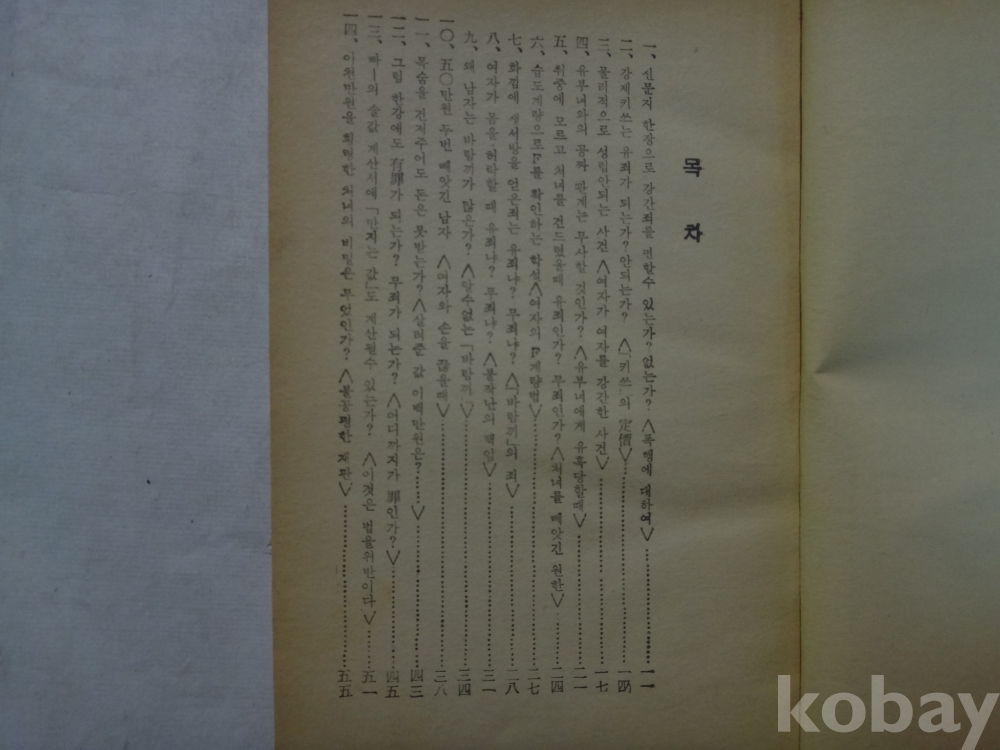 목차
一、신문지 한장으로 강간죄를 면할수 있는가? 없는가? <폭행에 대하여>……一一
二、강제키쓰는 유죄가 되는가? 안되는가? <「키쓰」의 定價>……一四
三、물리적으로 성립안되는 사건 <여자가 여자를 강간한 사건>……一七
四、유부녀와의 공짜 관계는 무사할 것인가? <유부녀에게 유혹당할때>……二一
五、취중에 모르고 처녀를 건드렸을때 유죄인가? 무죄인가? <처녀를 빼앗긴 원한>……二四
六、습도계량으로 를 확인하는 학설 <여자의 계량법>……二七
七、화김에 샛서방을 얻은죄는 유죄냐? 무죄냐? <「바람끼」의 죄>……二八
八、여자가 몸을 허락할 때 유죄냐? 무죄냐? <불장난의 책임>……三一
九、왜 남자는 바람끼가 많은가? <알수없는 「바람끼」>……三四
一〇、五〇만원 두번 빼앗긴 남자 <여자와 손을 끊을때>……三八
一一、목숨을 건져주어도 돈은 못받는가? <살려준 값 이백만원은?……>……四三
一二、그럼 한강에도 有罪가 되는가? 무죄가 되는가? <어디까지가 罪인가?>……四五
一三、빠―의 술값 계산서에 「만지는 값」도 계산될수 있는가? <이것은 법율위반이다>……五一
一四、이천만원을 희롱한 처녀의 비밀은 무엇인가? <불공평한 재판>……五五
kobay